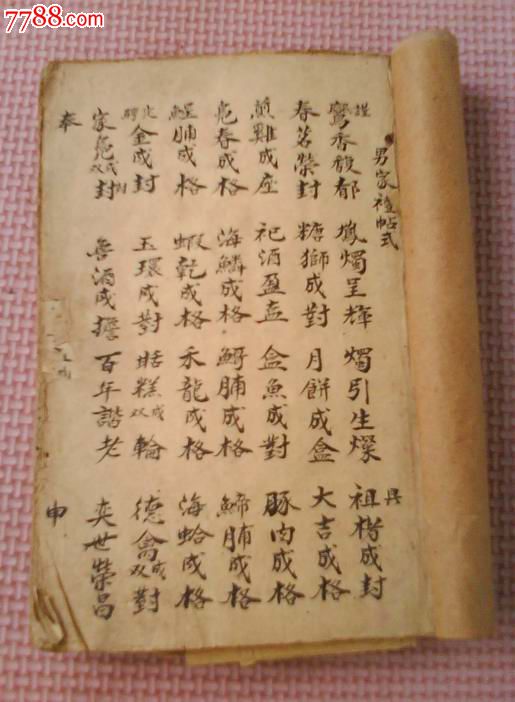 7788.com
男家禮帖式
謹
鸞香馥郁 鳳燭呈輝 燭引生燦 具 祖楮成封
春茗榮封 糖獅成對 月餅成盒 大吉成格
煎雞成座 祀酒盈壺 盒魚成對 豚肉成格
兔春成格 海鱗成格 脯成格 脯成格
脯成格 蝦乾成格 禾龍成格 海蛤成格
聘金成封 玉環成對 糕成双輪 德禽成双對
家兔成双封 酒成擔 百年諧老 奕世榮昌
奉 申